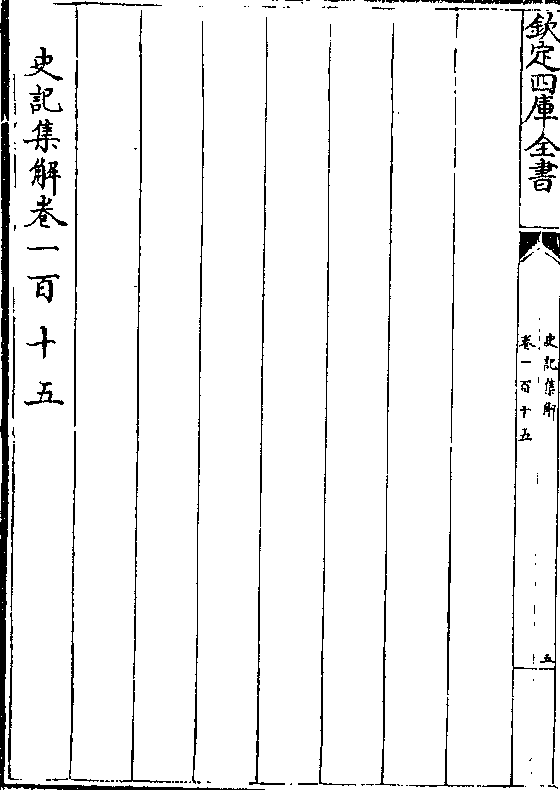 欽定四庫全書
史記集解
卷一百十五
五
史記集解卷一百十五